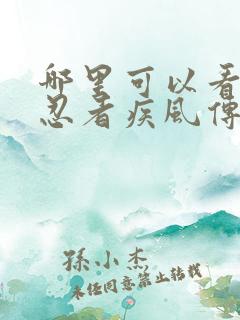 哪里可以看
忍者疾风传
孫小杰
未经同意禁止转载